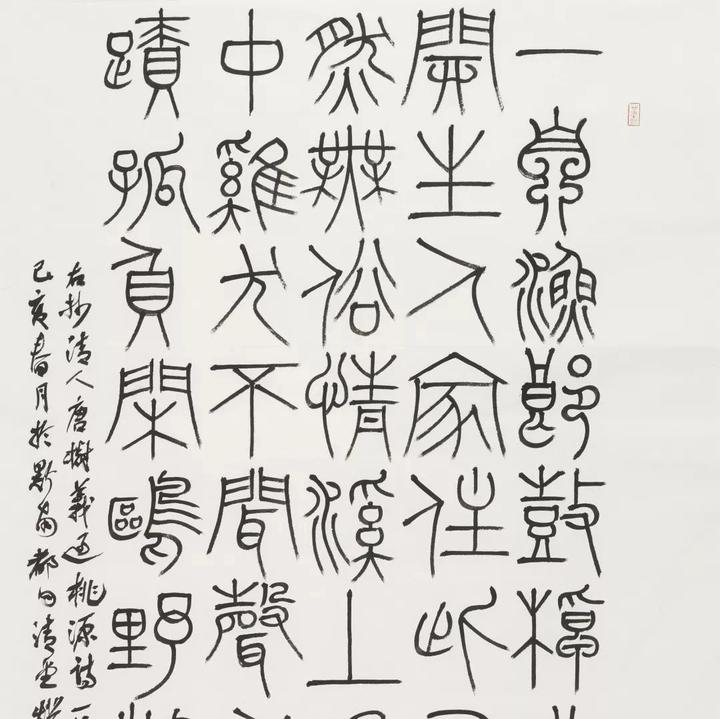 一漁郎鼓
開主人家住此
然無俗情溪上
中雞犬不聞聲
蹟孤負閑鷗野
右抄清人唐樹義過桃源詩一
己亥春月於黔南都勻清